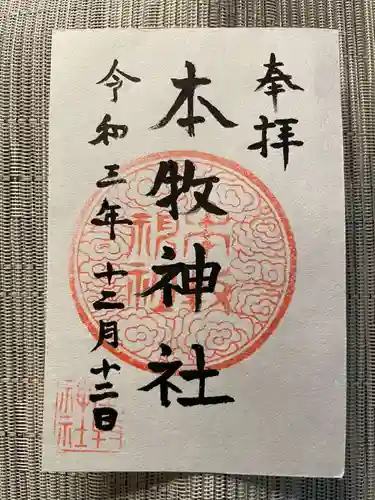 奉拝
本牧神社
令和三年十二月十二日
本牧
神社